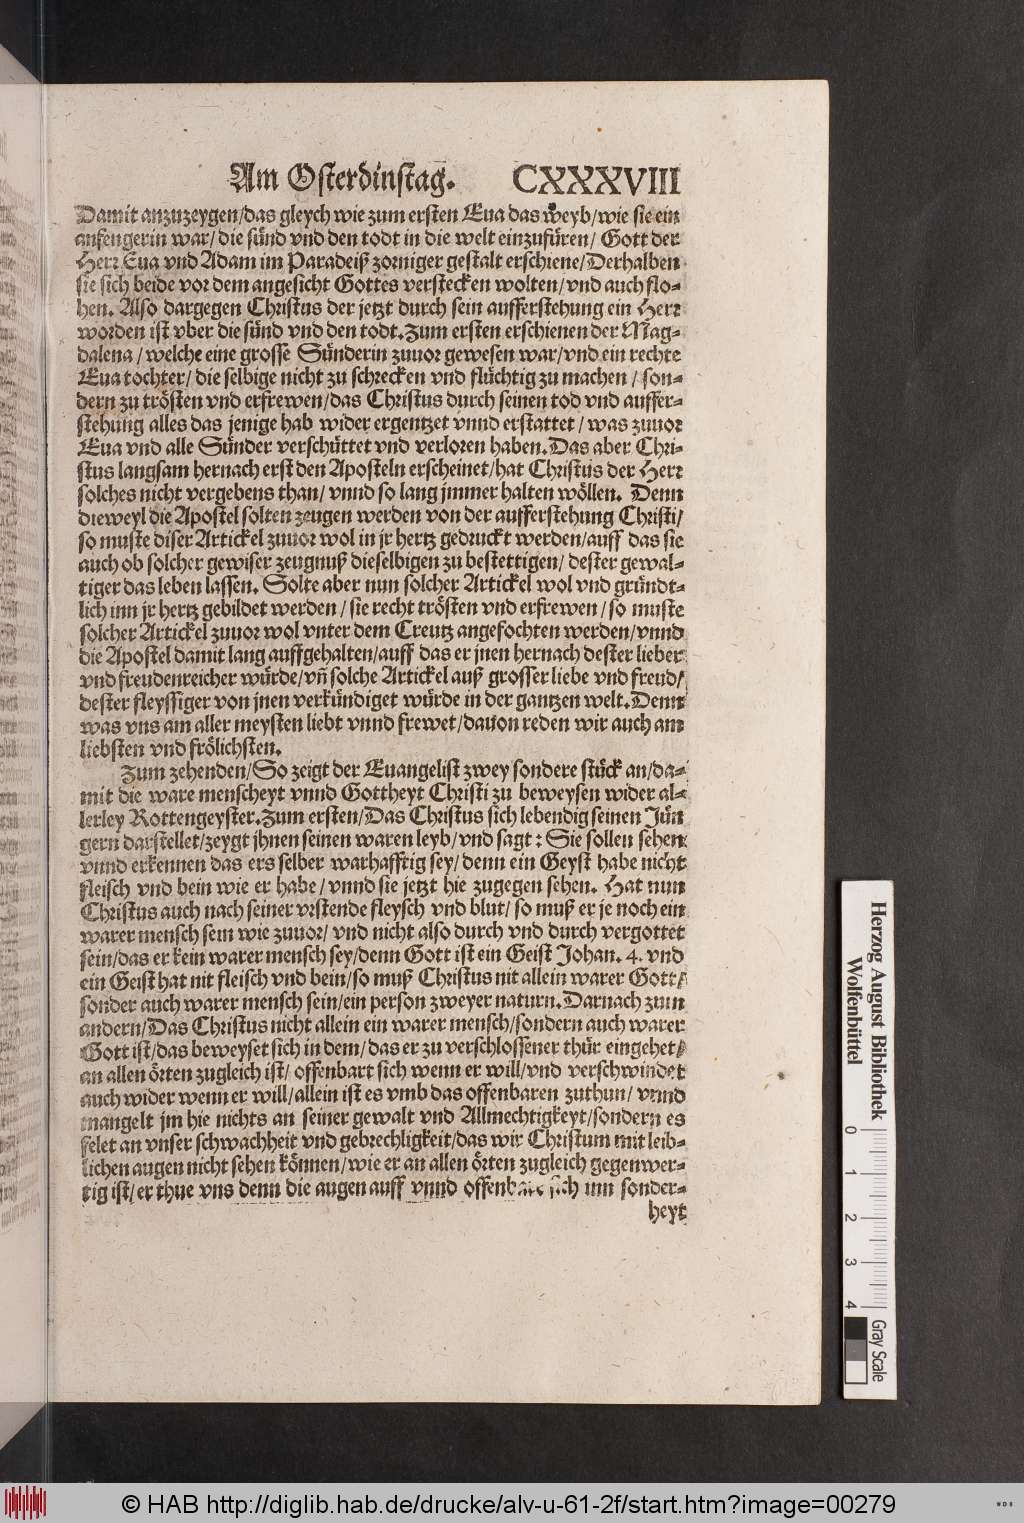 Am Osterdinstag. CXXXVIII
Damit anzuzeygen/das gleych wie zum ersten Eua das weyb/wie sie ein
anfengerin war/ die sünd vnd den todt in die welt einzufüren/ Gott der
Herr Eua vnd Adam im Paradeiß zorniger gestalt erschiene/Derhalben
sie sich beide vor dem angesicht Gottes verstecken wolten/vnd auch flo-
hen. Also dargegen Christus der jetzt durch sein aufferstehung ein Herr
worden ist vber die sünd vnd den todt. Zum ersten erschienen der Mag-
dalena/ welche eine grosse Sünderin zuuor gewesen war/vnd ein rechte
Eua tochter/ die selbige nicht zu schrecken vnd flüchtig zu machen/ son-
dern zu trösten vnd erfrewen/das Christus durch seinen tod vnd auffer-
stehung alles das jenige hab wider ergentzet vnnd erstattet/ was zuuor
Eua vnd alle Sünder verschüttet vnd verloren haben. Das aber Chri-
stus langsam hernach erst den Aposteln erscheinet/hat Christus der Herr
solches nicht vergebens than/ vnnd so lang jmmer halten wöllen. Denn
dieweyl die Apostel solten zeugen werden von der aufferstehung Christi/
so muste diser Artickel zuuor wol in jr hertz gedruckt werden/auff das sie
auch ob solcher gewiser zeugnuß dieselbigen zu bestettigen/ dester gewal-
tiger das leben lassen. Solte aber nun solcher Artickel wol vnd gründt-
lich inn jr hertz gebildet werden/ sie recht trösten vnd erfrewen/ so muste
solcher Artickel zuuor wol vnter dem Creutz angefochten werden/vnnd
die Apostel damit lang auffgehalten/auff das er jnen hernach dester lieber
vnd freudenreicher würde/vñ solche Artickel auß grosser liebe vnd freud/
dester fleyssiger von jnen verkündiget würde in der gantzen welt. Denn
was vns am aller meysten liebt vnnd frewet/dauon reden wir auch am
liebsten vnd frölichsten.
Zum zehenden/So zeigt der Euangelist zwey sondere stück an/da-
mit die ware menscheyt vnnd Gottheyt Christi zu beweysen wider al-
lerley Rottengeyster. Zum ersten/Das Christus sich lebendig seinen Jün
gern darstellet/zeygt jhnen seinen waren leyb/vnd sagt: Sie sollen sehen
vnnd erkennen das ers selber warhafftig sey/ denn ein Geyst habe nicht
fleisch vnd bein wie er habe/ vnnd sie jetzt hie zugegen sehen. Hat nun
Christus auch nach seiner vrstende fleysch vnd blut/ so muß er je noch ein
warer mensch sein wie zuuor/ vnd nicht also durch vnd durch vergottet
sein/das er kein warer mensch sey/denn Gott ist ein Geist Johan. 4. vnd
ein Geist hat nit fleisch vnd bein/so muß Christus nit allein warer Gott/
sonder auch warer mensch sein/ein person zweyer naturn. Darnach zum
andern/Das Christus nicht allein ein warer mensch/sondern auch warer
Gott ist/das beweyset sich in dem/das er zu verschlossener thür eingehet/
an allen örten zugleich ist/ offenbart sich wenn er will/vnd verschwindet
auch wider wenn er will/allein ist es vmb das offenbaren zuthun/ vnnd
mangelt jm hie nichts an seiner gewalt vnd Allmechtigkeyt/sondern es
felet an vnser schwachheit vnd gebrechligkeit/das wir Christum mit leib-
lichen augen nicht sehen können/wie er an allen örten zugleich gegenwer-
tig ist/er thue vns denn die augen auff vnnd offenbare sich inn sonder-
heyt
Herzog August Bibliothek
Wolfenbüttel
0 1 2 3 4
Gray Scale
© HAB http://diglib.hab.de/drucke/alv-u-61-2f/start.htm?image=00279